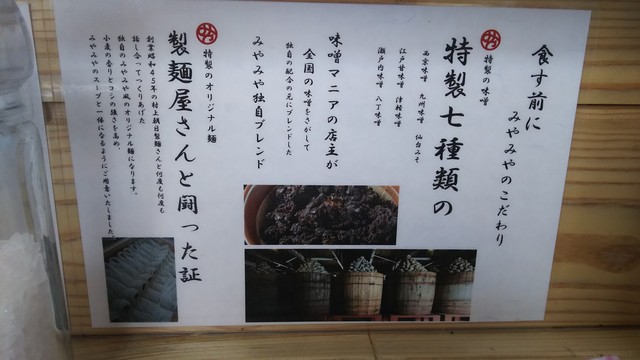 食す前に
みやみやのこだわり
特製の味噌
特製七種類の
西京味噌 九州味噌 仙台みそ
江戸甘味噌 津軽味噌
瀬戸内味噌 八丁味噌
味噌マニアの店主が
全国の味噌をさがして
独自の配合の元にブレンドした
みやみや独自ブレンド
特製のオリジナル麺
製麺屋さんと闘った証
創業昭和45年の村上朝日製麺さんと何度も何度も
話し合ってつくりあげた
独自のみやみや風のオリジナル麺になります。
小麦の香りとコシの強さを高め、
みやみやのスープと一体になるようにご用意いたしました。